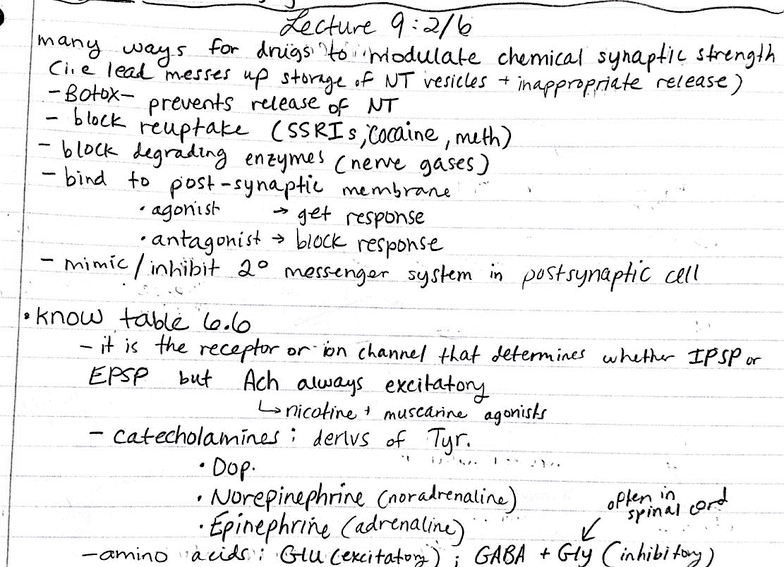 Lecture 9: 2/6
many ways for drugs to modulate chemical synaptic strength
(i.e lead messes up storage of NT vesicles + inappropriate release)
- Botox - prevents release of NT
- block reuptake (SSRIs, cocaine, meth)
- block degrading enzymes (nerve gases)
- bind to post-synaptic membrane
• agonist → get response
• antagonist → block response
- mimic/inhibit 2° messenger system in postsynaptic cell
• know table 6.6
- it is the receptor or ion channel that determines whether IPSP or
EPSP but Ach always excitatory
↳ nicotine + muscarine agonists
- catecholamines: derivs of Tyr.
• Dop.
• Norepinephrine (noradrenaline)
often in
spinal cord
• Epinephrine (adrenaline)
- amino acids: Glu (excitatory); GABA + Gly (inhibitory)